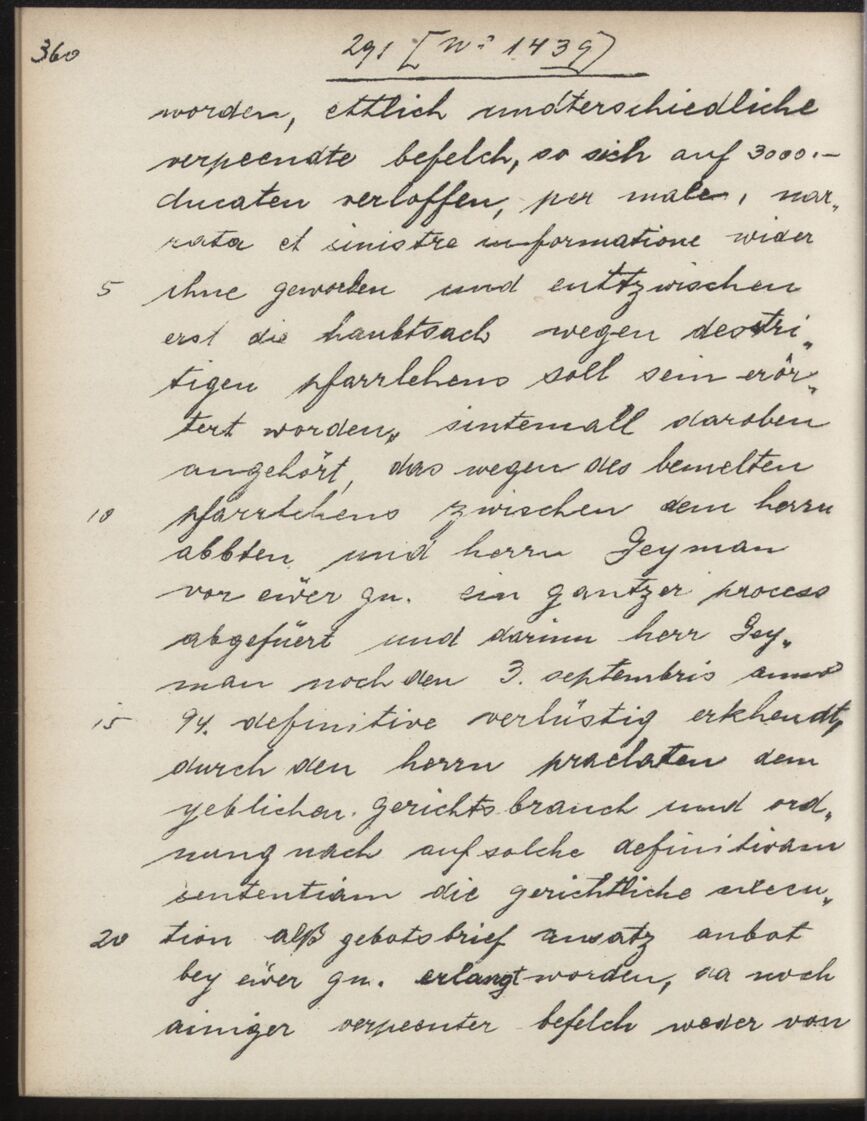 360
291 [N° 1439]
worden, ettlich undterschiedliche
verpeendte befelch, so sich auf 3000.–
ducaten verloffen, per male, nar„
rata et sinistre informatione wider
5 ihne geworben und enttzwischen
erst die haubtsach wegen des stri„
tigen pfarrlehens soll sein erör„
tert worden, sintemall daroben
angehört, das wegen des bemelten
10 pfarrlehens zwischen dem herrn
abbten und herrn Geyman
vor eüer gn. ein gantzer process
abgefüert und darinn herr Gey„
man noch den 3. septembris anno
15 94. definitive verlüstig erkhendt,
durch den herrn praelaten dem
yeblichen gerichtsbrauch und ord„
nung nach auf solche definitivam
sententiam die gerichtliche execu„
20 tion alß gebotsbrief ansatz anbot
bey eüer gn. erlangt worden, da noch
ainiger verpeenter befelch weder von